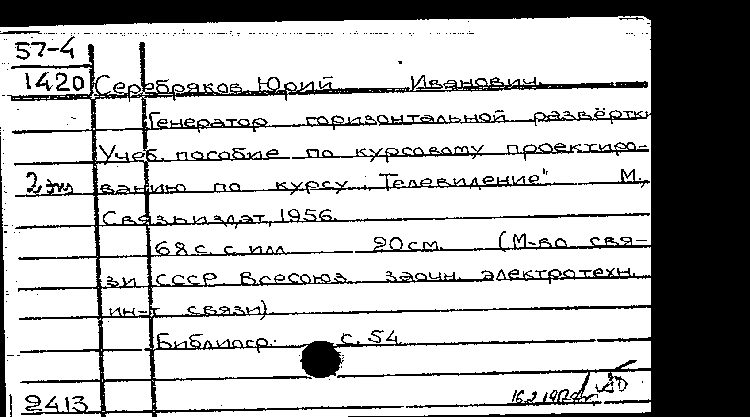 57-4
1420 Серебряков Юрий Иванович.
Генератор горизонтальной развёртки
Учеб. пособие по курсовому проектиро-
2 экз ванию по курсу „Телевидение" М.,
Связьиздат, 1956.
68 с. с илл. 20 см. (М-во свя-
зи СССР Всесоюз. заочн. электротехн.
ин-т связи)
Библиогр. с. 54
2413